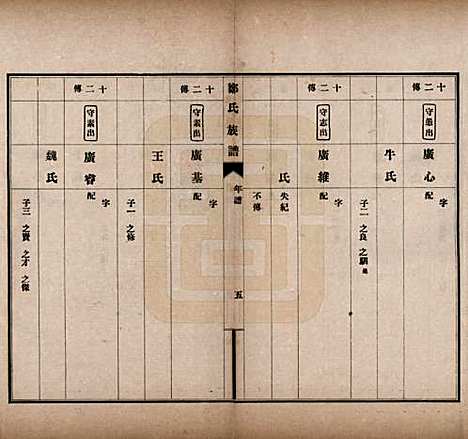 十二傳
守愚出
廣心 字
配
牛氏
子二 之良 之騆
十二傳
守志出
廣維 字
配
氏 失紀
不傳
鄭氏族譜
年譜
五
十二傳
守素出
廣基 字
配
王氏
子一 之修
十二傳
守素出
廣睿 字
配
魏氏
子三 之賓 之才 之傑